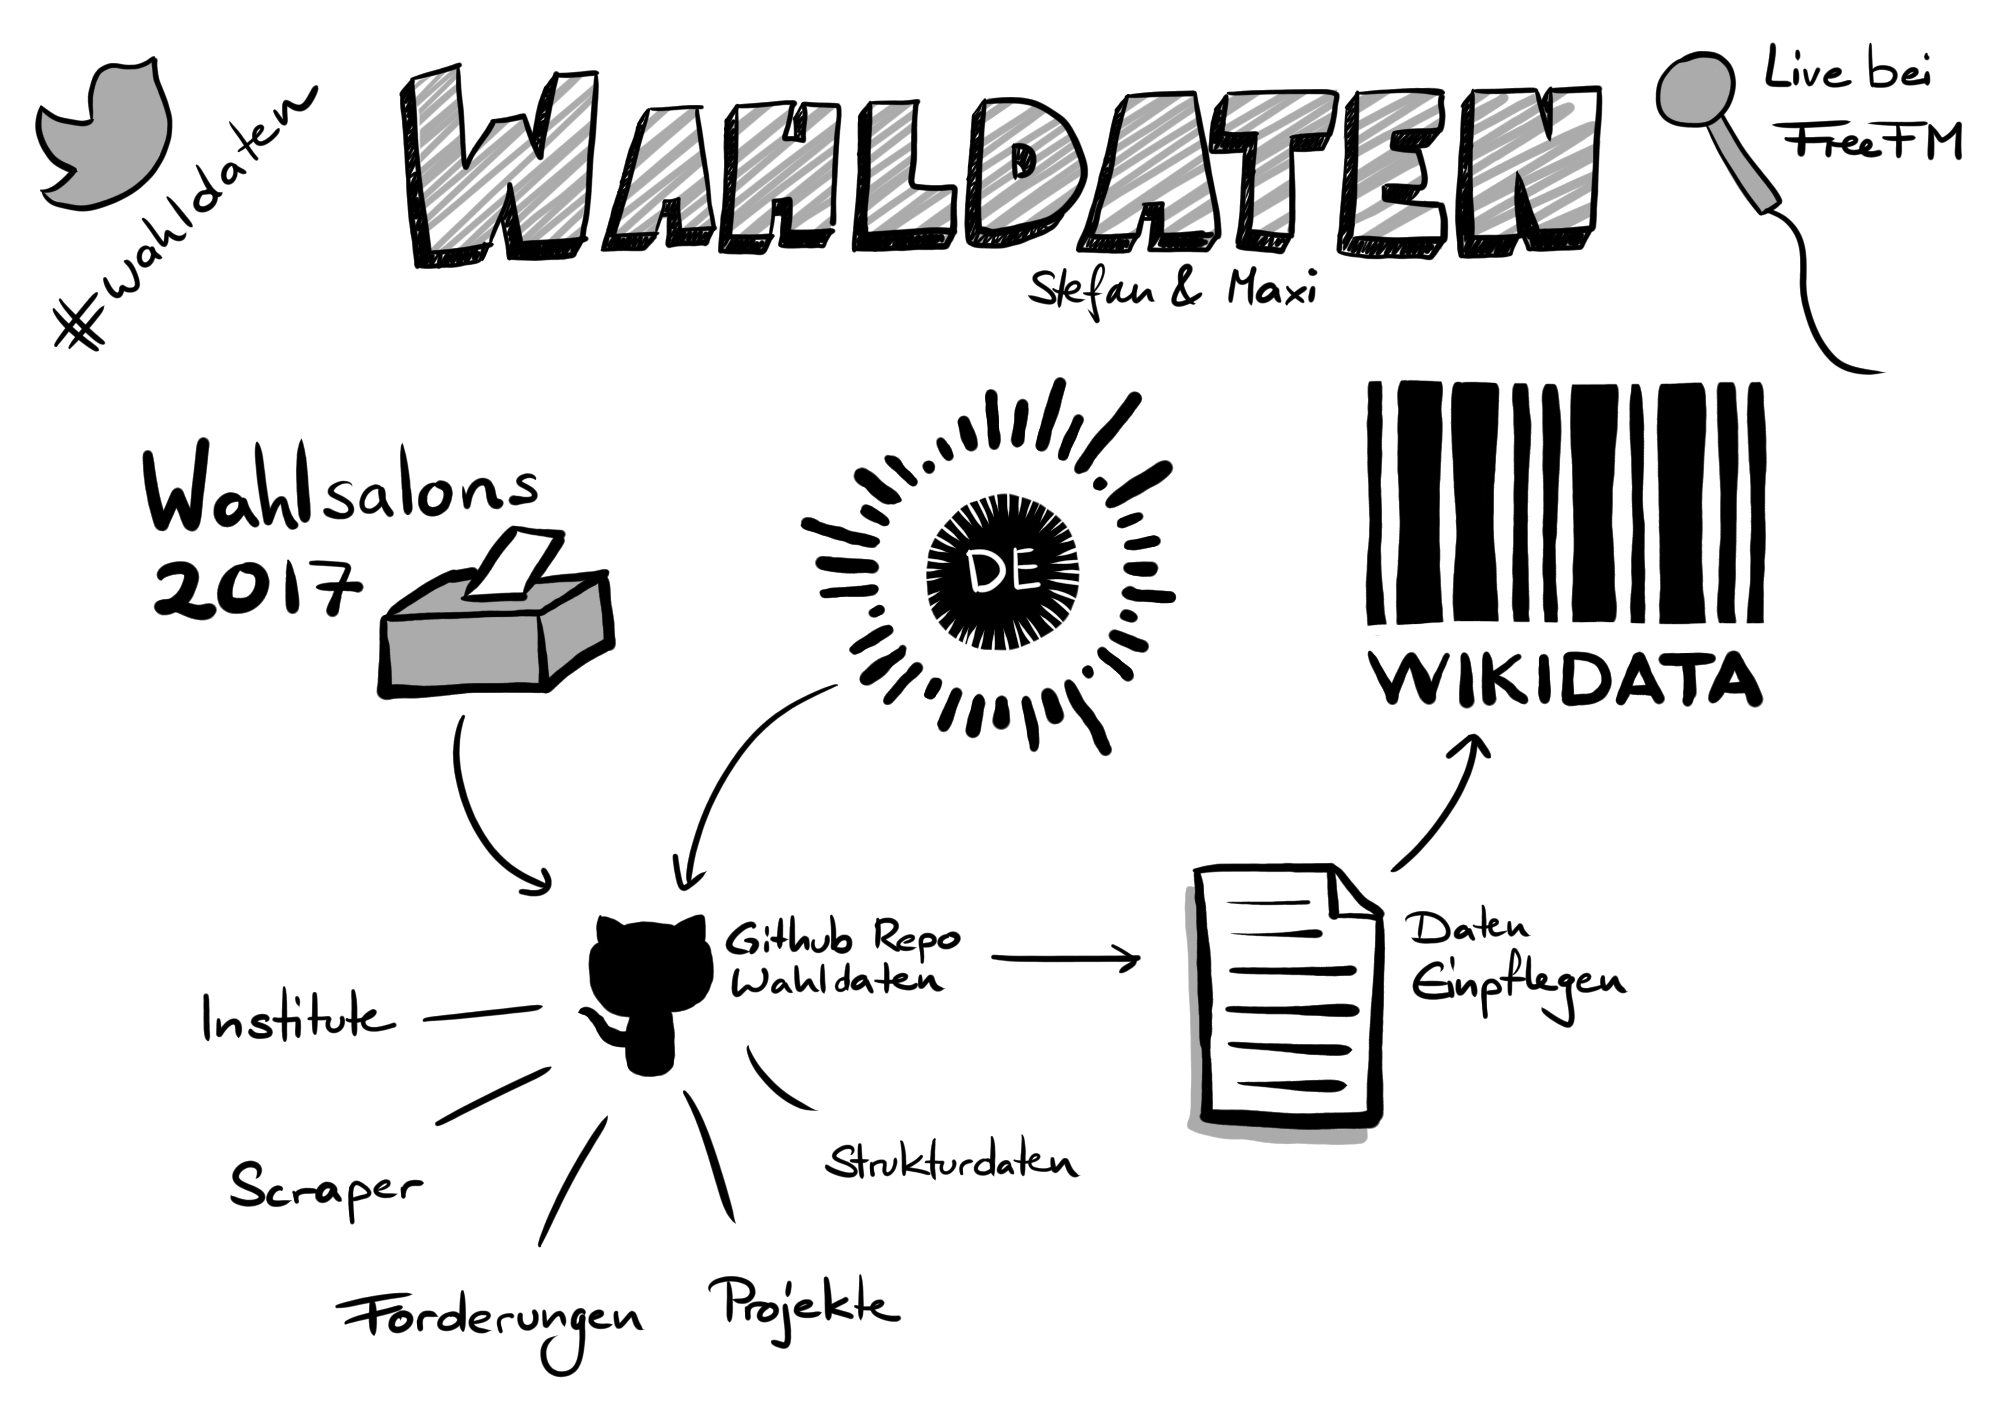 #wahldaten
WAHLDATEN
Stefan & Maxi
Live bei
FreeFM
Wahlsalons
2017
DE
WIKIDATA
Github Repo
Wahldaten
Daten
Einpflegen
Institute
Scraper
Forderungen
Projekte
Strukturdaten